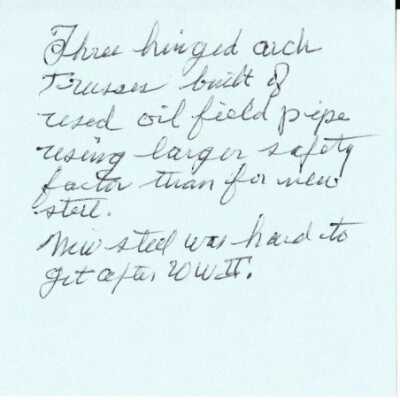 Three hinged arch
Trusses built of
used oil field pipe
using larger safety
factor than for new
steel.
New steel was hard to
get after WWII.